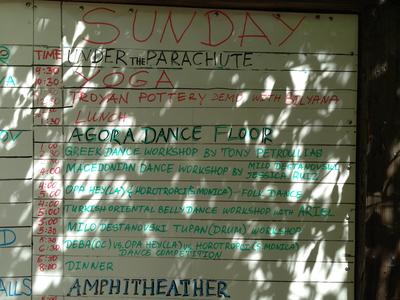 SUNDAY
TIME UNDER THE PARACHUTE
9:30
10:30 YOGA
TROYAN POTTERY DEMO WITH BILYANA
LUNCH
AGORA DANCE FLOOR
GREEK DANCE WORKSHOP BY TONY PETROULIAS
4:00 MACEDONIAN DANCE WORKSHOP BY MILO DESTANOVSKI,
JESSICA RUIZ
4:00
5:00 OPA HEY(LA) & HOROTROPCI (S.MONICA) - FOLK DANCE
5:00 TURKISH ORIENTAL BELLYDANCE WORKSHOP WITH ARIEL
5:30 MILO DESTANOVSKI TUPAN (DRUM) WORKSHOP
5:30
6:30 DEBA (OC) VS. OPA HEY (LA) VS HOROTROPCI (S.MONICA)
DANCE COMPETITION
6:30
8:00 DINNER
AMPHITHEATHER